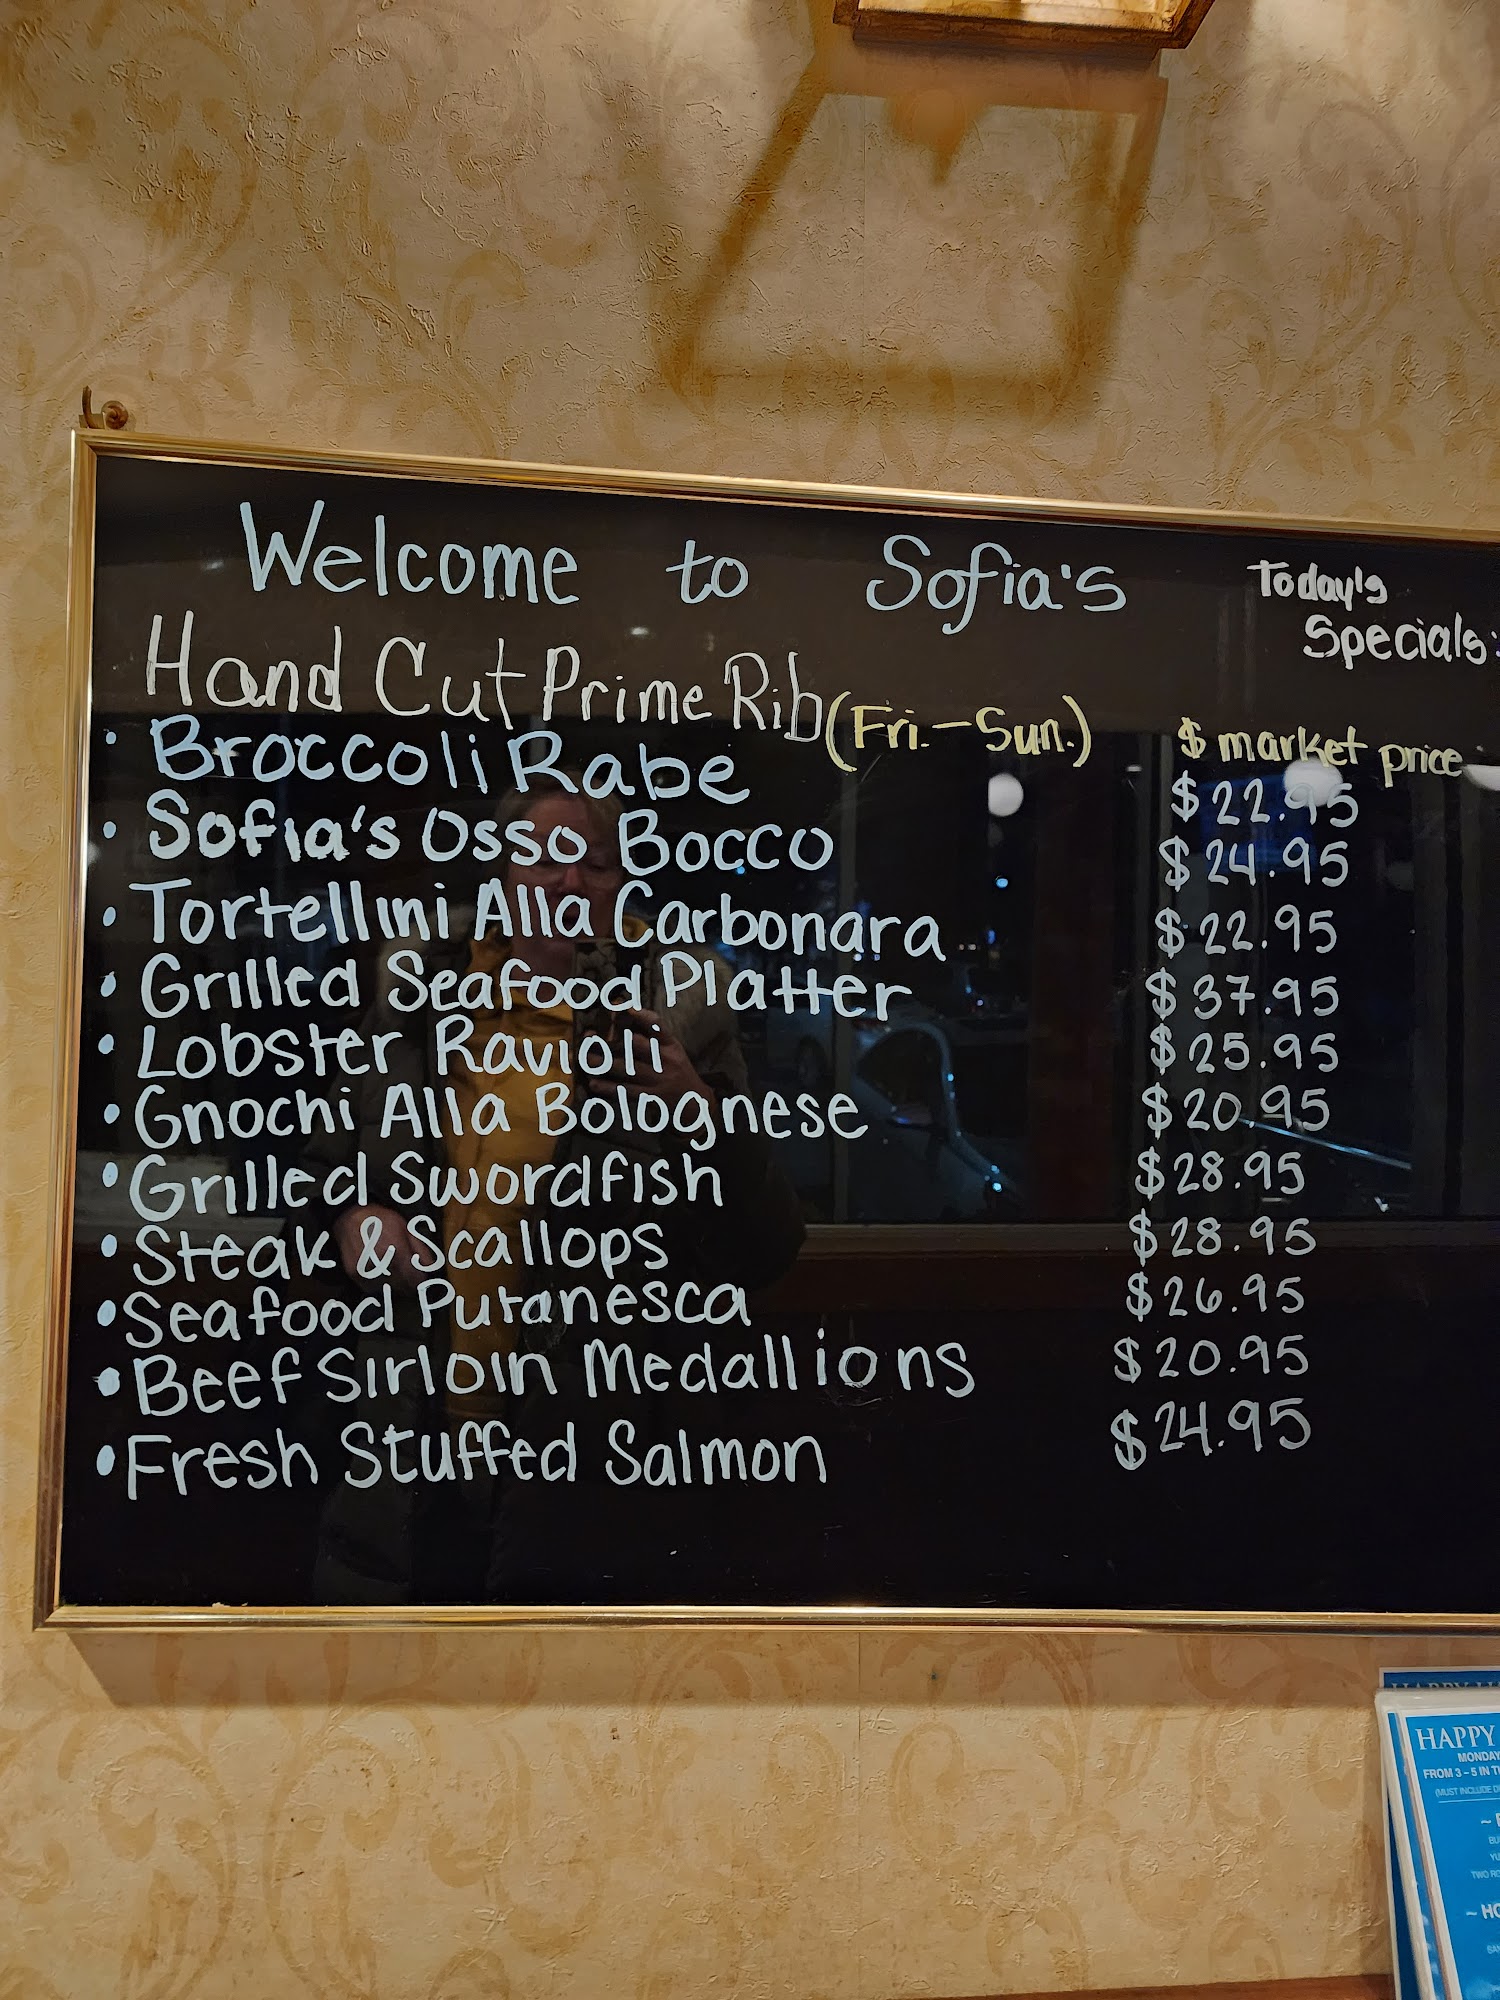 Welcome to Sofia's
Today's
Specials:
Hand Cut Prime Rib (Fri.-Sun.) $ market price
• Broccoli Rabe $22.95
• Sofia's Osso Bocco $24.95
• Tortellini Alla Carbonara $22.95
• Grilled Seafood Platter $37.95
• Lobster Ravioli $25.95
• Gnochi Alla Bolognese $20.95
• Grilled Swordfish $28.95
• Steak & Scallops $28.95
• Seafood Putanesca $26.95
• Beef Sirloin Medallions $20.95
• Fresh Stuffed Salmon $24.95
HAPPY
MONDAY
FROM 3 - 5 IN
(MUST INCLUDE
TWO